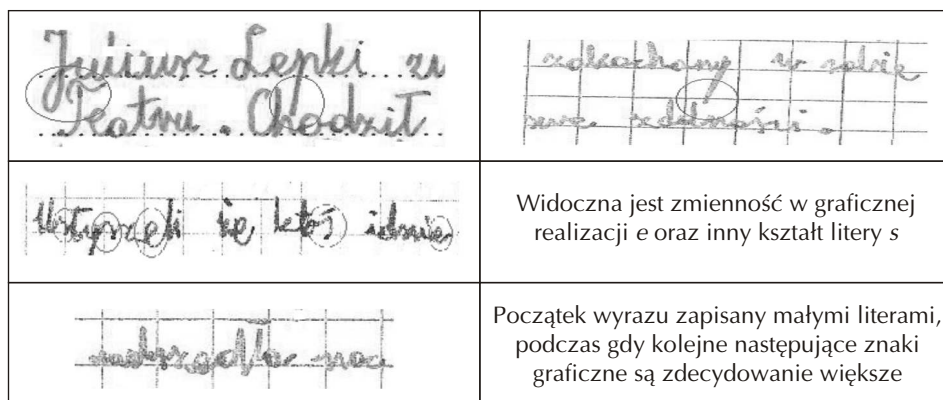 Juliusz Lepki zu
Teatru. Chodził
zakochany w sobie
swe zdolności.
Usłyszeli że ktoś idzie
Widoczna jest zmienność w graficznej
realizacji e oraz inny kształt litery s
nadszedła noc
Początek wyrazu zapisany małymi literami,
podczas gdy kolejne następujące znaki
graficzne są zdecydowanie większe